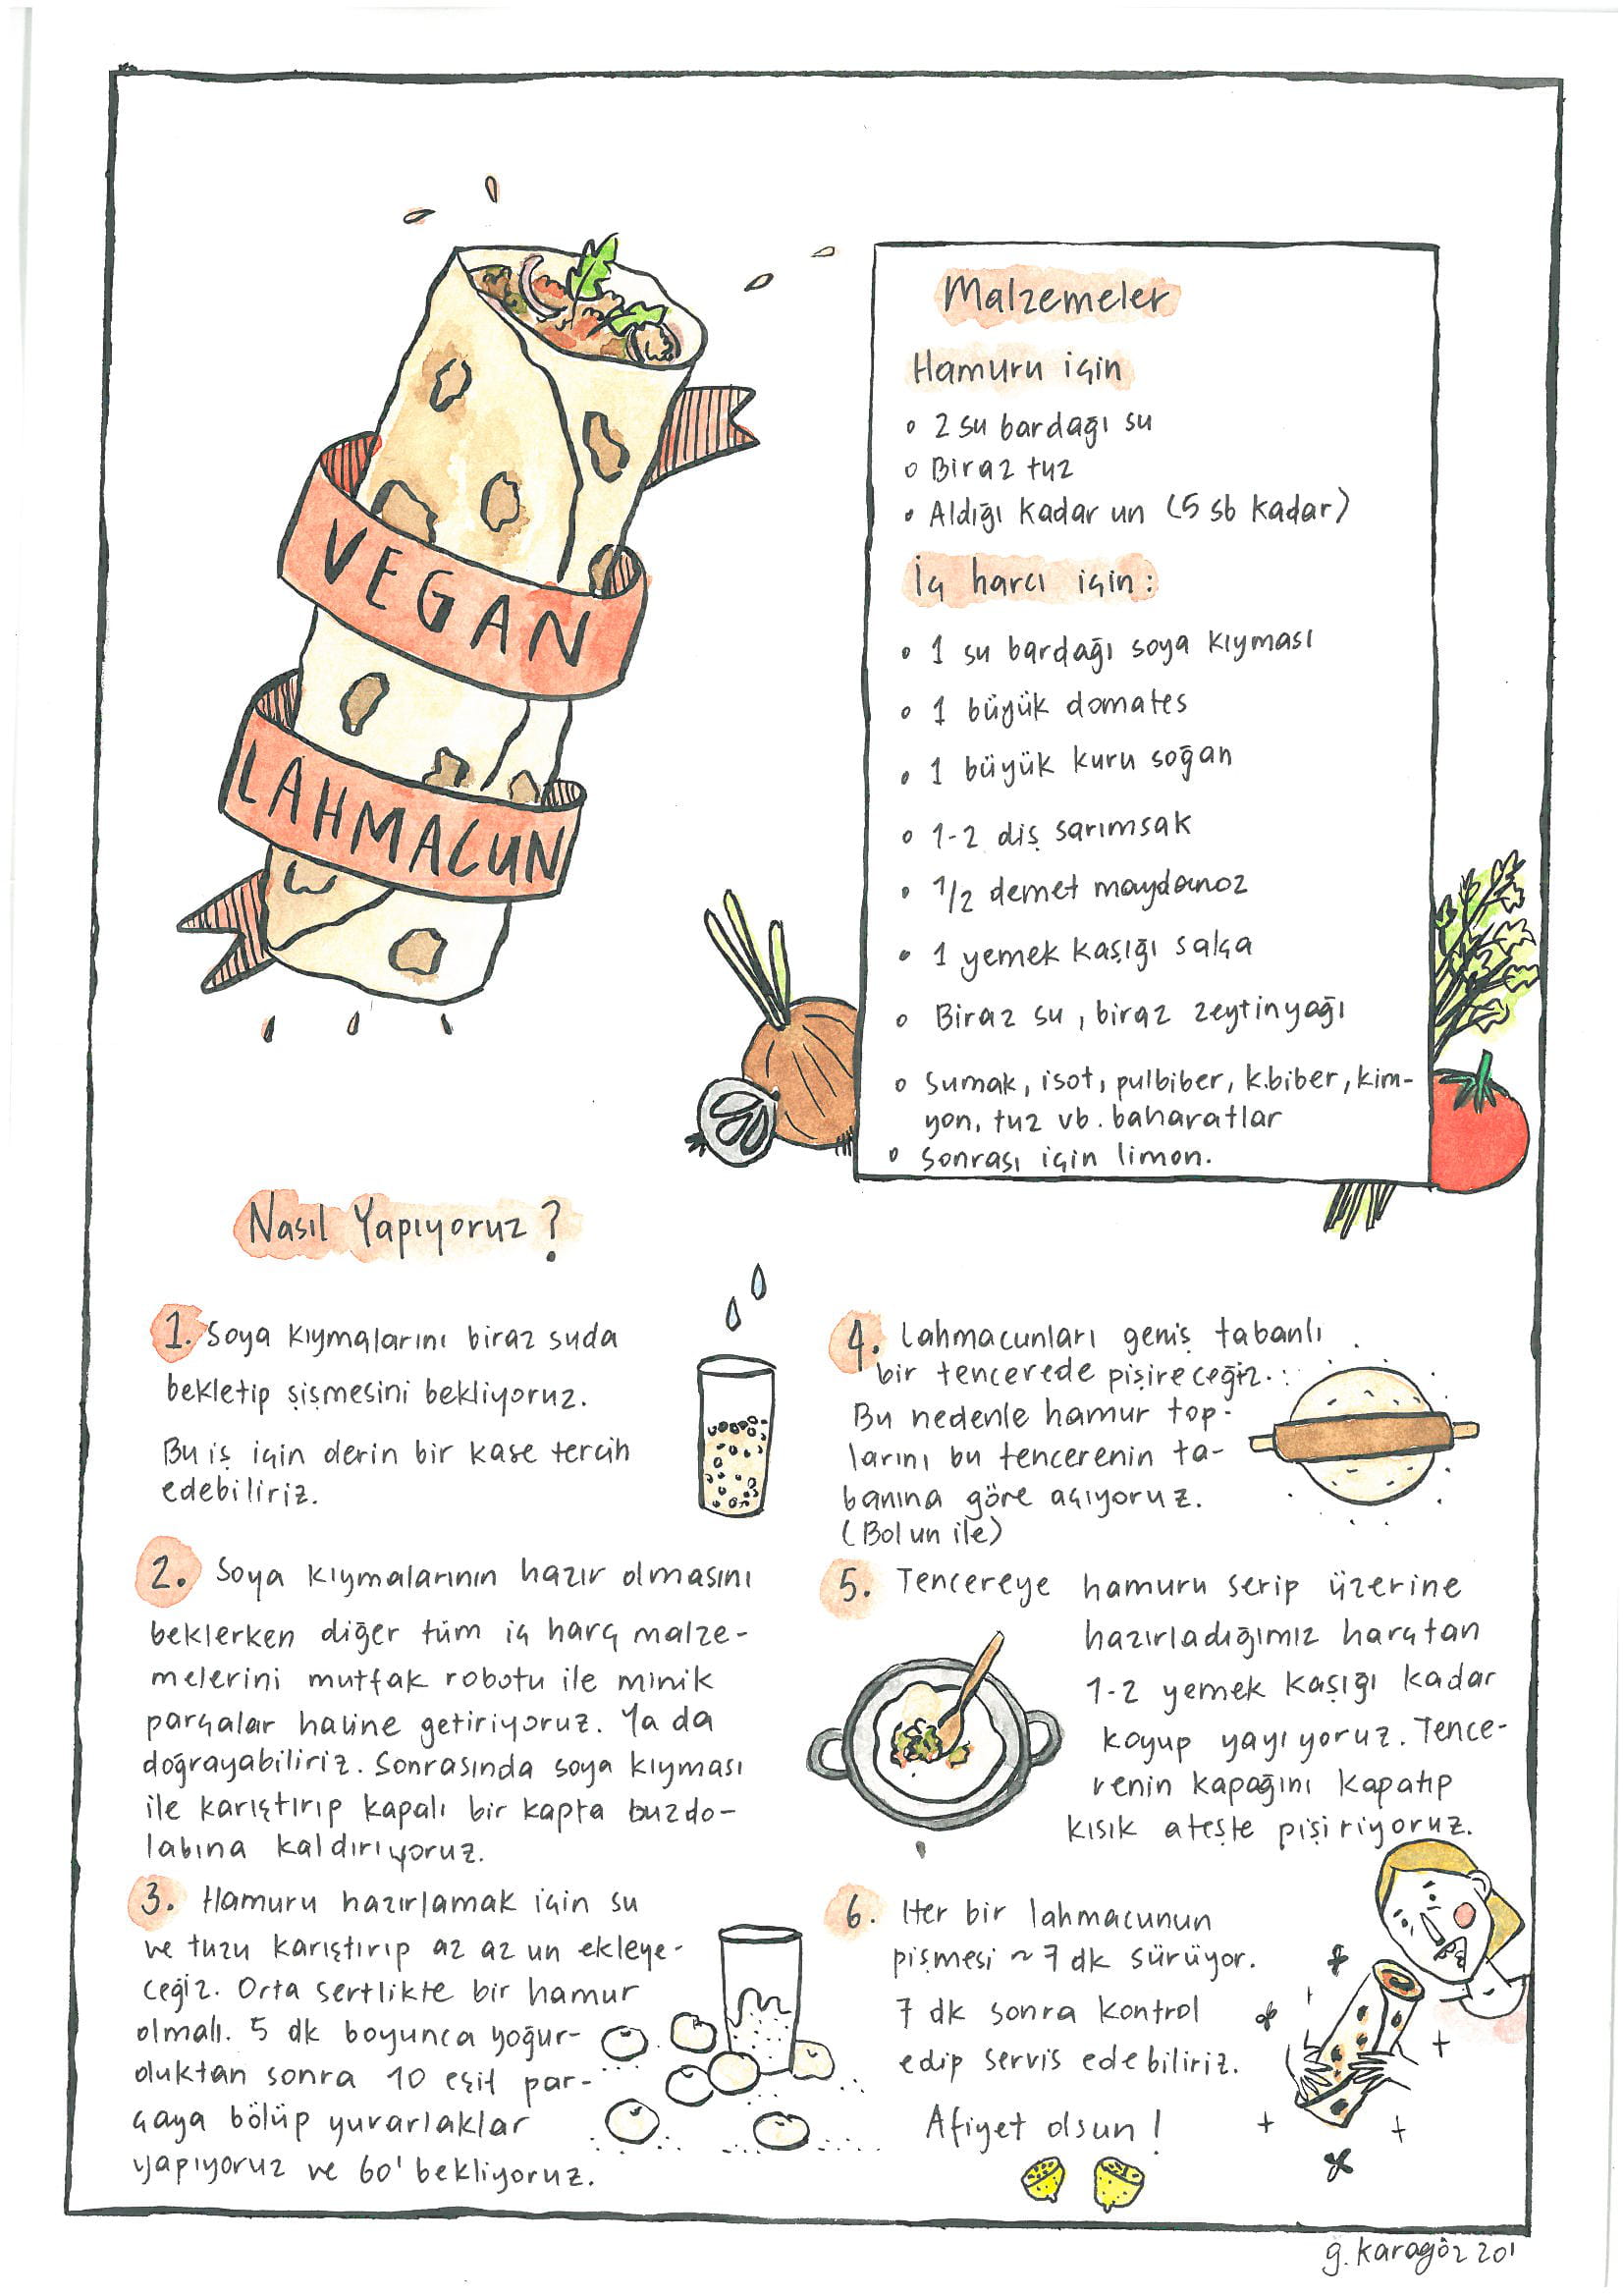 VEGAN
LAHMACUN
Malzemeler
Hamuru için
• 2 su bardağı su
• Biraz tuz
• Aldığı kadar un (5 sb kadar)
İç harcı için:
• 1 su bardağı soya kıyması
• 1 büyük domates
• 1 büyük kuru soğan
• 1-2 diş sarımsak
• 1/2 demet maydanoz
• 1 yemek kaşığı salça
• Biraz su, biraz zeytinyağı
• Sumak, isot, pulbiber, k.biber, kim-
yon, tuz vb. baharatlar
• Sonrası için limon.
Nasıl Yapıyoruz?
1. Soya kıymalarını biraz suda
bekletip şişmesini bekliyoruz.
Bu iş için derin bir kase tercih
edebiliriz.
2. Soya kıymalarının hazır olmasını
beklerken diğer tüm iç harç malze-
melerini mutfak robotu ile minik
parçalar haline getiriyoruz. Ya da
doğrayabiliriz. Sonrasında soya kıyması
ile karıştırıp kapalı bir kapta buzdo-
labına kaldırıyoruz.
3. Hamuru hazırlamak için su
ve tuzu karıştırıp az az un ekleye-
ceğiz. Orta sertlikte bir hamur
olmalı. 5 dk boyunca yoğur-
duktan sonra 10 eşit par-
çaya bölüp yuvarlaklar
yapıyoruz ve 60' bekliyoruz.
4. Lahmacunları geniş tabanlı
bir tencerede pişireceğiz.
Bu nedenle hamur top-
larını bu tencerenin ta-
banına göre açıyoruz.
(Bol un ile)
5. Tencereye hamuru serip üzerine
hazırladığımız harçtan
1-2 yemek kaşığı kadar
koyup yayıyoruz. Tence-
renin kapağını kapatıp
kısık ateşte pişiriyoruz.
6. Her bir lahmacunun
pişmesi ~ 7 dk sürüyor.
7 dk sonra kontrol
edip servis edebiliriz.
Afiyet olsun!
g. karagöz 201